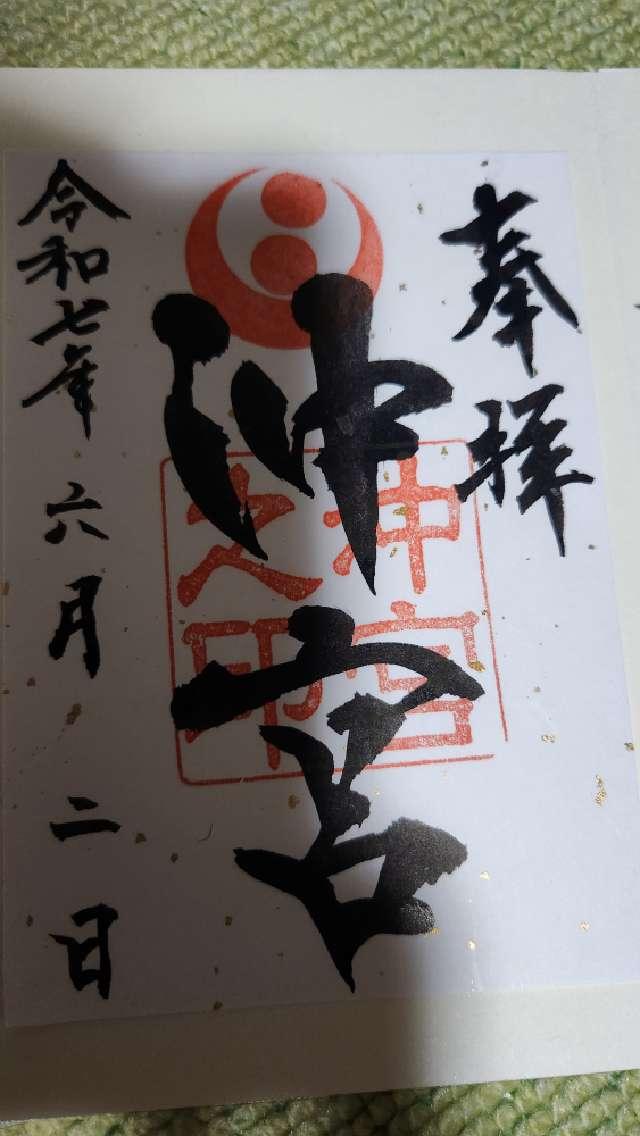 奉拝
沖宮
沖宮
之印
令和七年 六月 二日